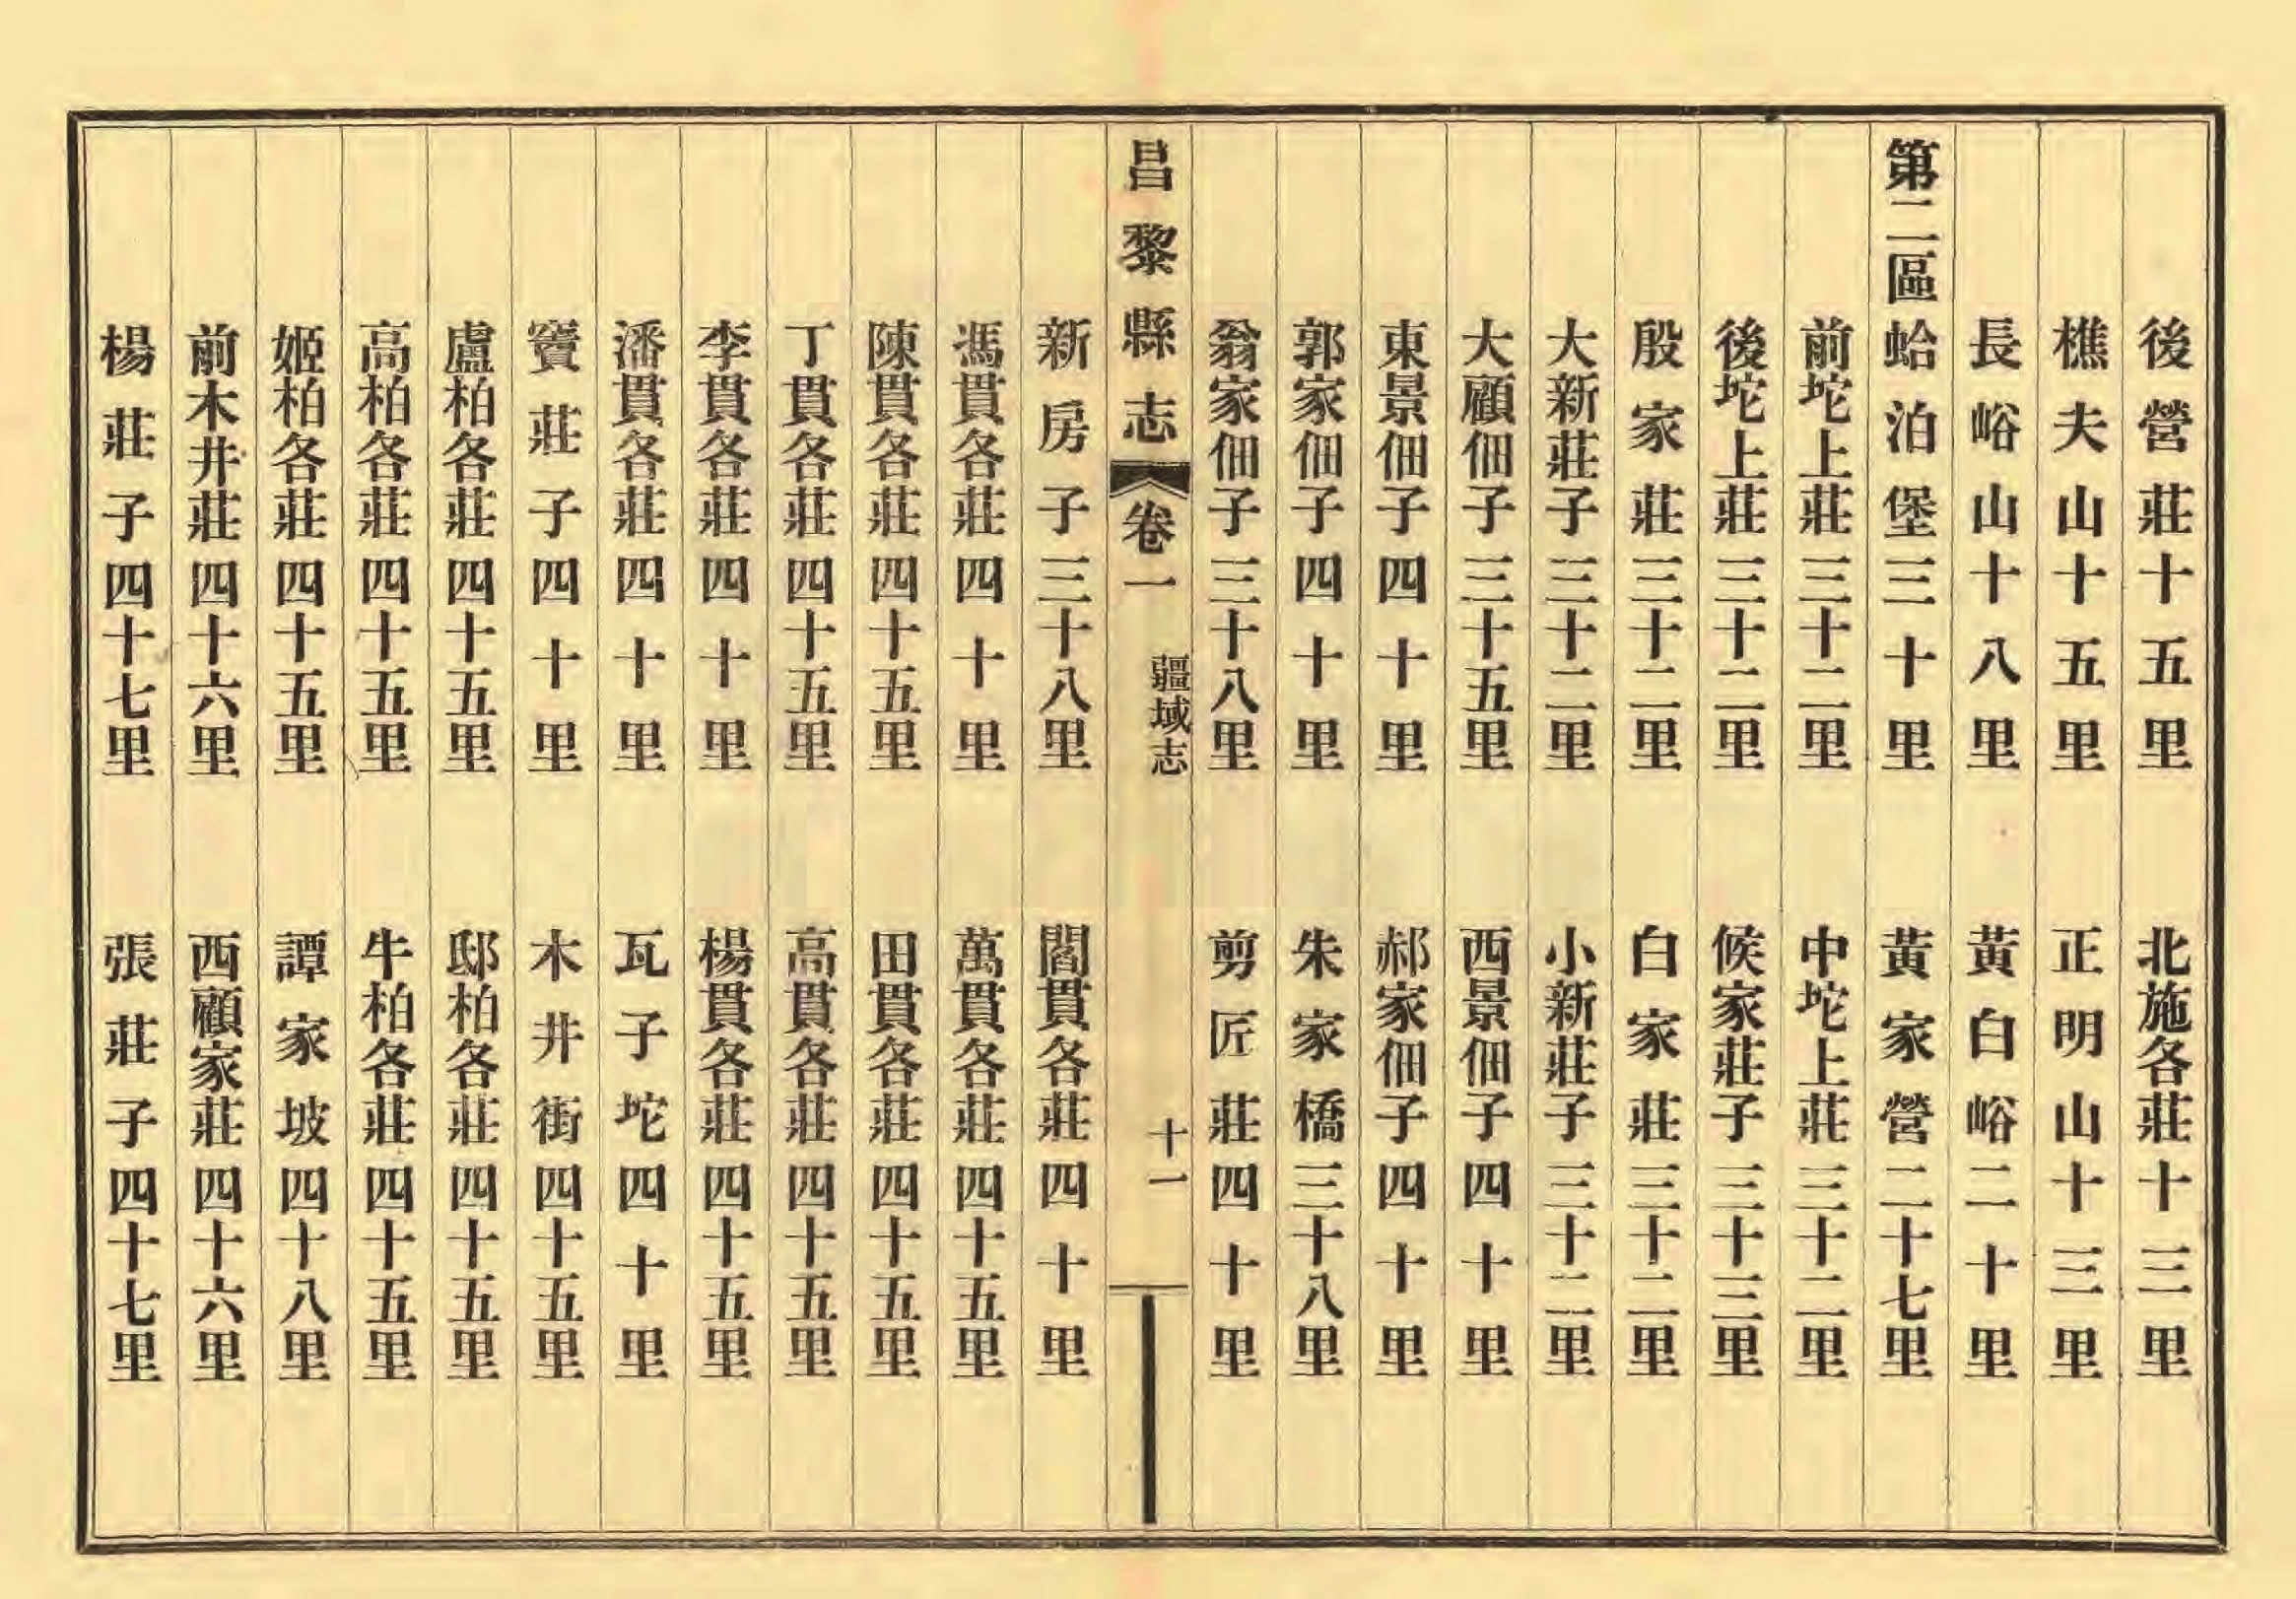 後營莊十五里　北施各莊十三里
樵夫山十五里　正明山十三里
長峪山十八里　黃白峪二十里
第二區蛤泊堡三十里　黃家營二十七里
前坨上莊三十二里　中坨上莊三十二里
後坨上莊三十二里　候家莊子三十三里
殷家莊三十二里　白家莊三十二里
大新莊子三十二里　小新莊子三十二里
大顧佃子三十五里　西景佃子四十里
東景佃子四十里　郝家佃子四十里
郭家佃子四十里　朱家橋三十八里
翁家佃子三十八里　剪匠莊四十里
昌黎縣志　卷一　疆域志　十一
新房子三十八里　閻貫各莊四十里
馮貫各莊四十里　萬貫各莊四十五里
陳貫各莊四十五里　田貫各莊四十五里
丁貫各莊四十五里　高貫各莊四十五里
李貫各莊四十里　楊貫各莊四十五里
潘貫各莊四十里　瓦子坨四十里
竇莊子四十里　木井街四十五里
盧柏各莊四十五里　邸柏各莊四十五里
高柏各莊四十五里　牛柏各莊四十五里
姬柏各莊四十五里　譚家坡四十八里
前木井莊四十六里　西顧家莊四十六里
楊莊子四十七里　張莊子四十七里